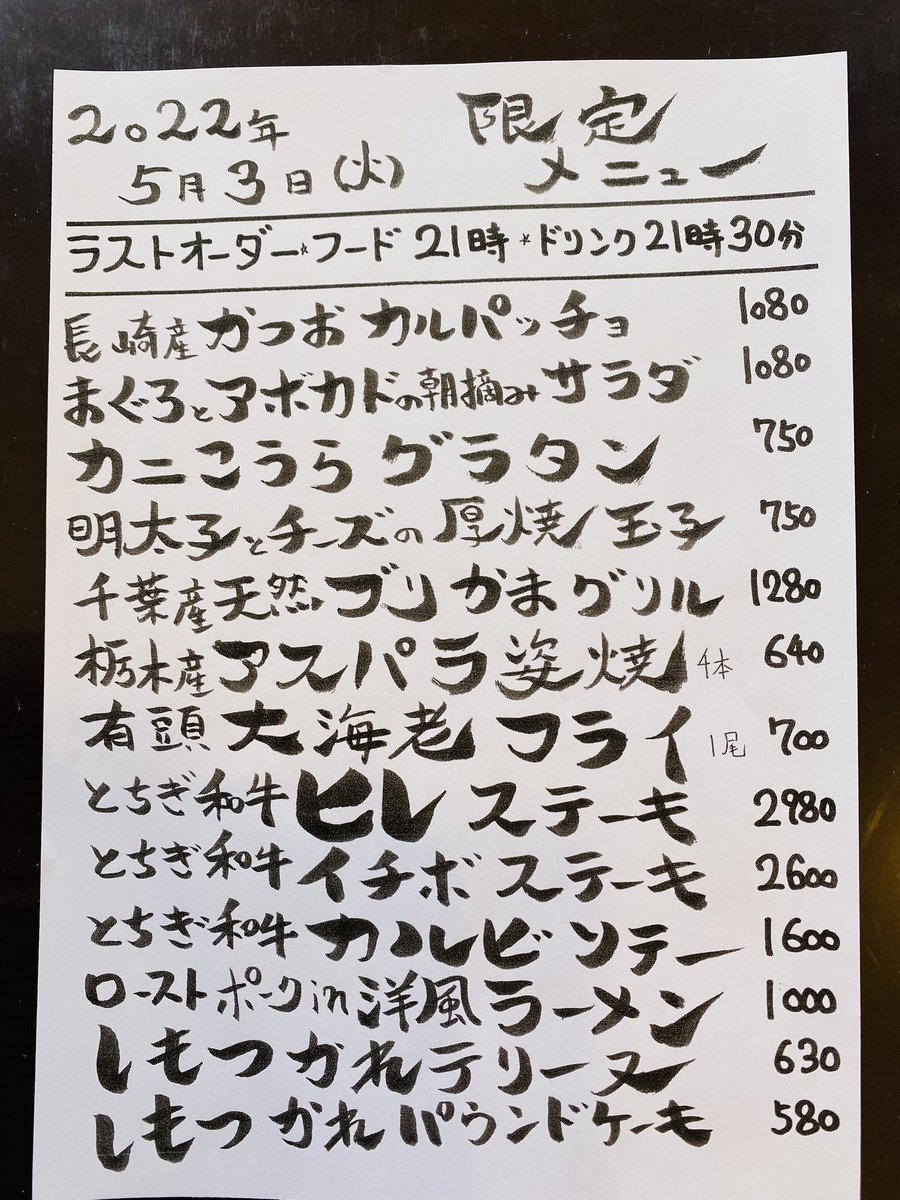 2022年 限定
5月3日(火) メニュー
ラストオーダー☆フード 21時 ☆ドリンク21時30分
長崎産かつおカルパッチョ 1080
まぐろとアボカドの朝摘みサラダ 1080
カニこうらグラタン 750
明太子とチーズの厚焼玉子 750
千葉産天然ブリかまグリル 1280
栃木産アスパラ姿焼 4本 640
有頭大海老フライ 1尾 700
とちぎ和牛ヒレステーキ 2980
とちぎ和牛イチボステーキ 2600
とちぎ和牛カルビソテー 1600
ローストポークin洋風ラーメン 1000
しもつかれテリーヌ 630
しもつかれパウンドケーキ 580